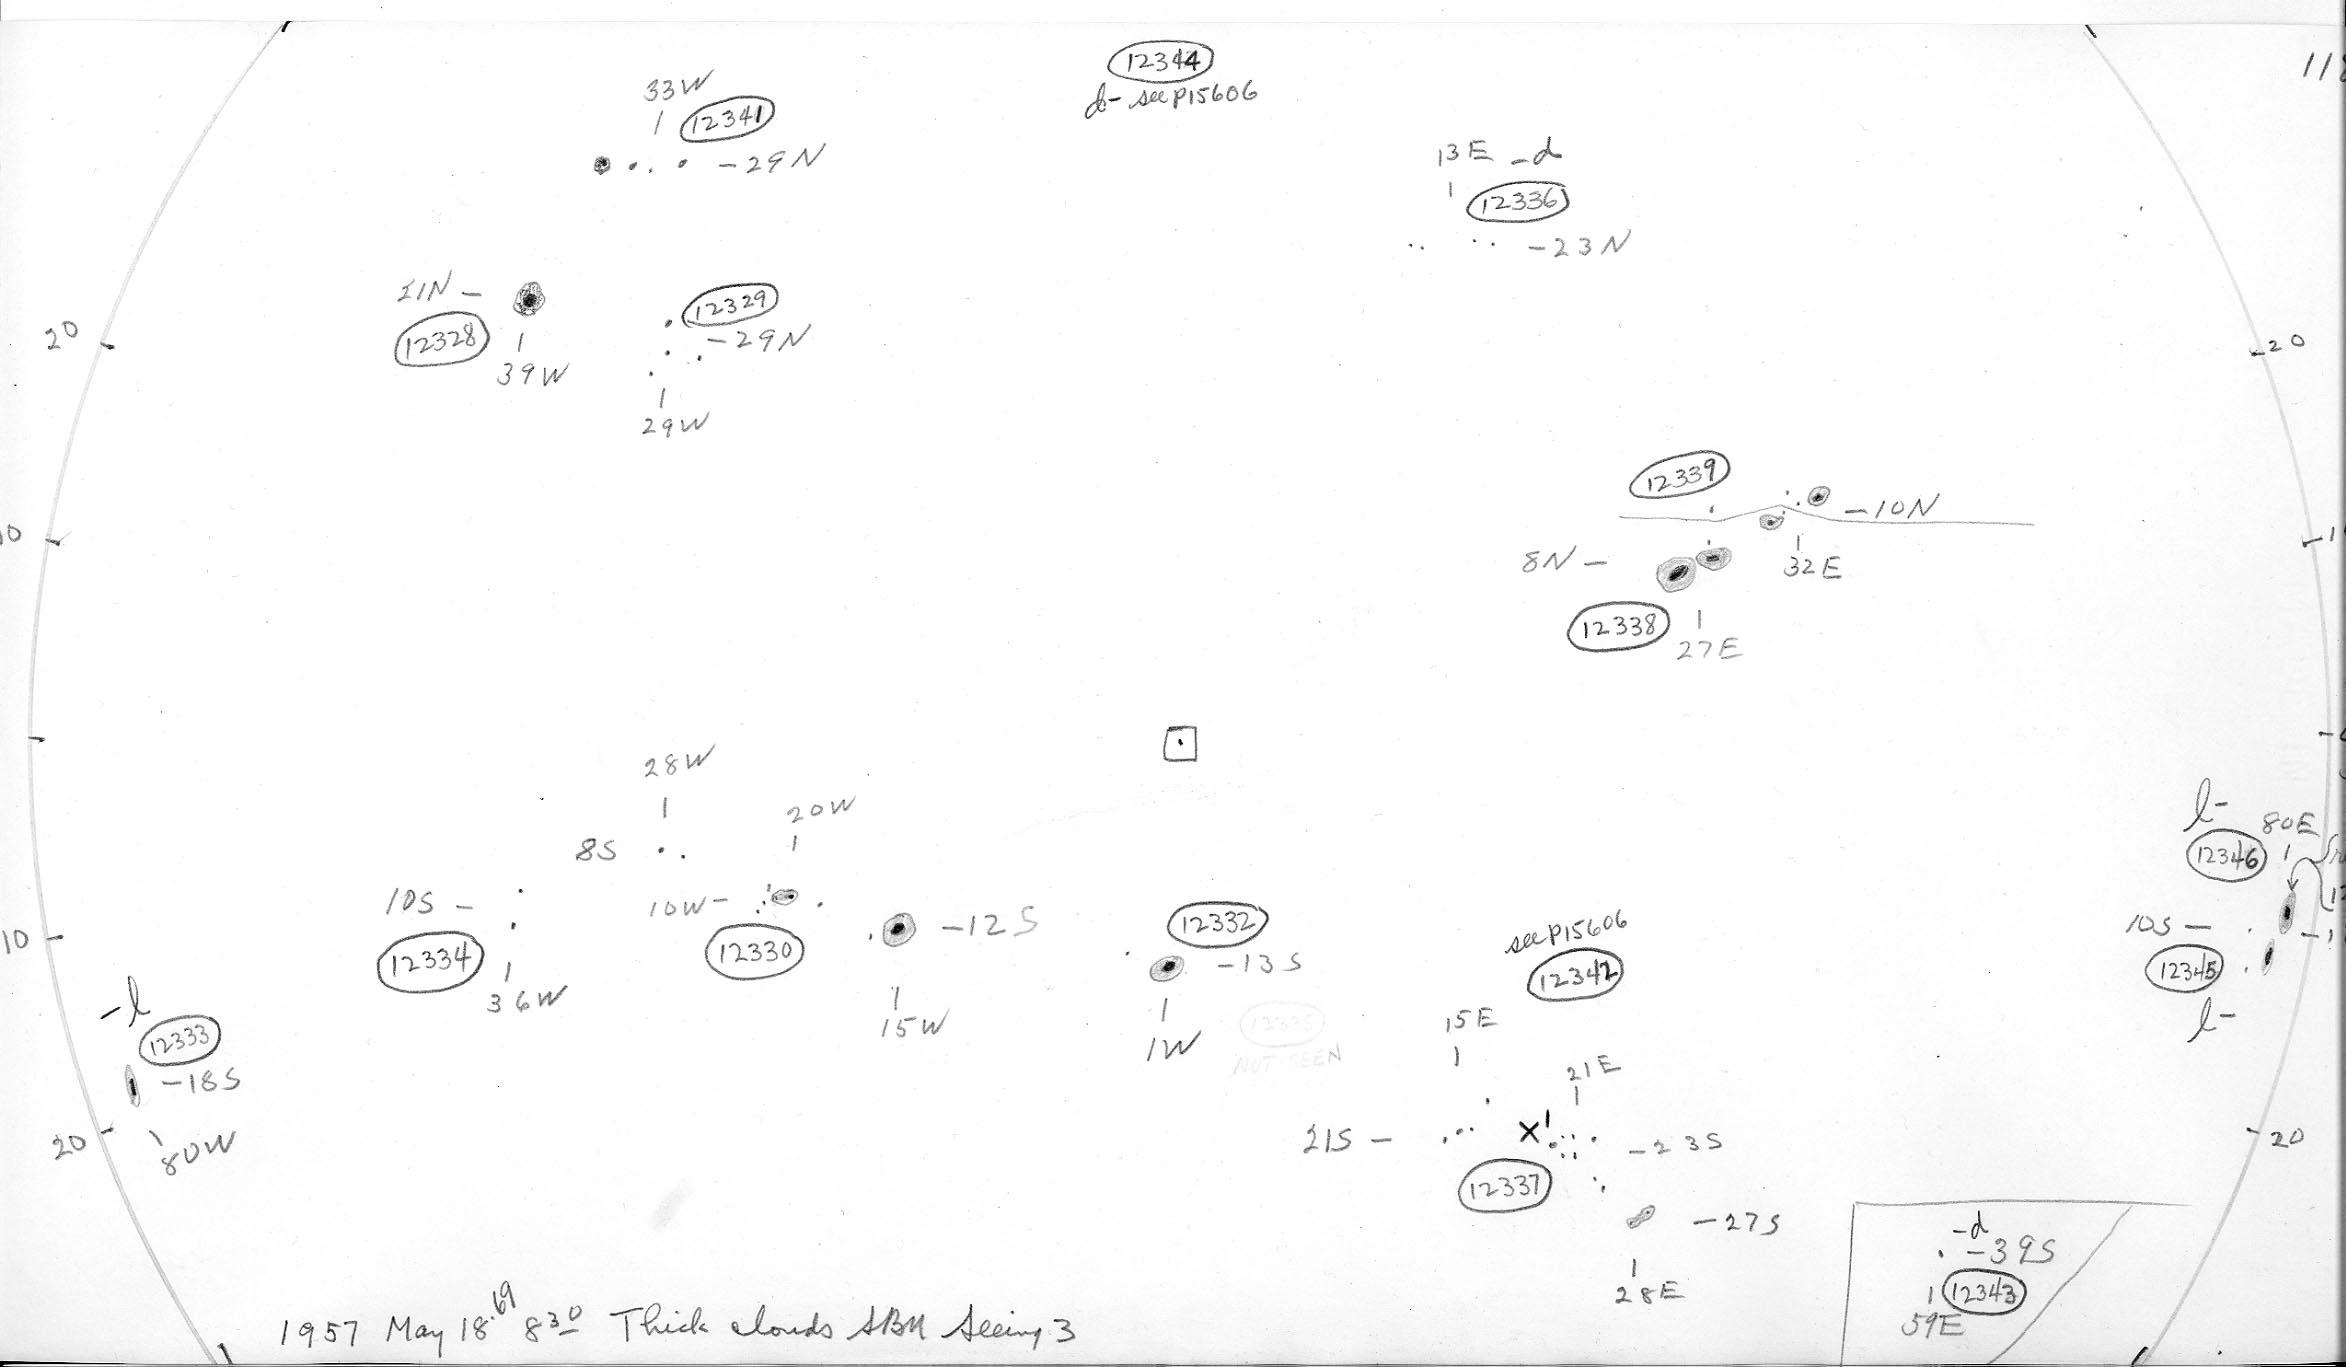 12344
d- see P15606
118
33W
12341
-29N
13E -d
12336
-23N
21N -
12328
39W
12329
-29N
29W
20
-20
12339
-10N
32E
8N -
12338
27E
0
-1
28W
8S
20W
10W-
12330
-12S
15W
10S -
12334
36W
10
12332
-13S
1W
NOT SEEN
see P15606
12342
15E
21E
21S -
X
-23S
12337
-27S
28E
l-
80E
12346
10S -
12345
l-
-l
12333
-18S
80W
20
20
-d
-39S
12343
59E
1957 May 18.69 830 Thick clouds Seeing 3